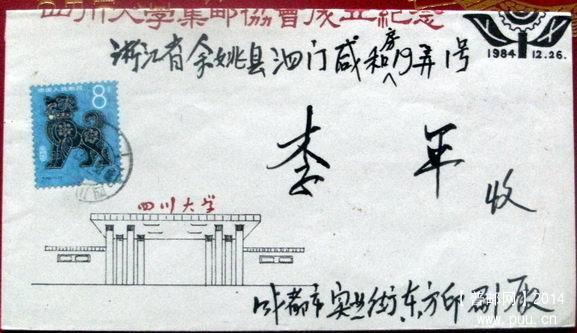 四川大学集邮协會成立纪念
1984.12.26.
浙江省余姚县泗门咸和房19弄1号
8分
中国人民邮政
李军
收
四川大学
成都市实业街东方印刷厂
www.puu.cn